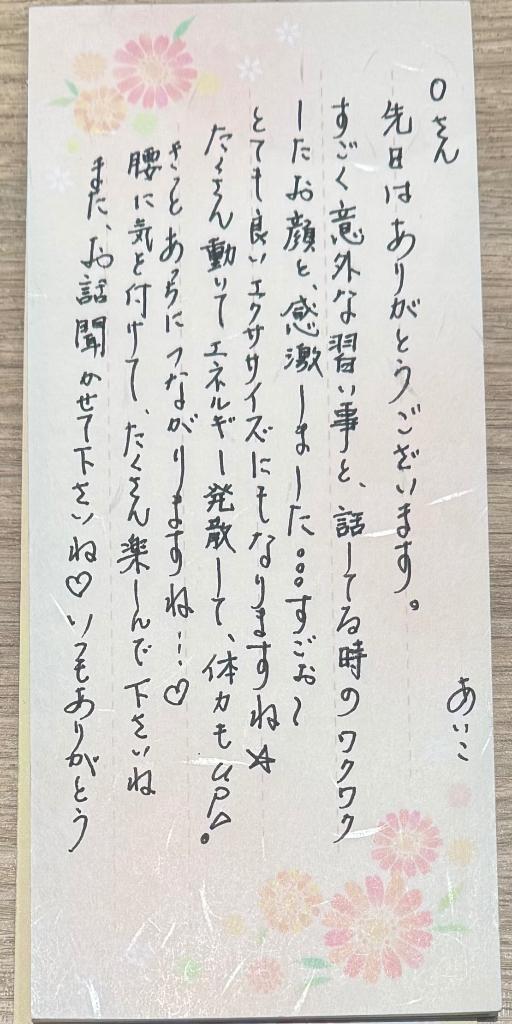 Oさん
先日はありがとうございます。
あいこ
すごく意外な習い事と、話してる時のワクワク
したお顔と、感激しました。。。すごお〜
とても良いエクササイズにもなりますね☆
たくさん動いてエネルギー発散して、体力もUP⤴。
きっとあっちにつながりますね!!♡
腰に気を付けて、たくさん楽しんで下さいね
また、お話聞かせて下さいね♡いつもありがとう